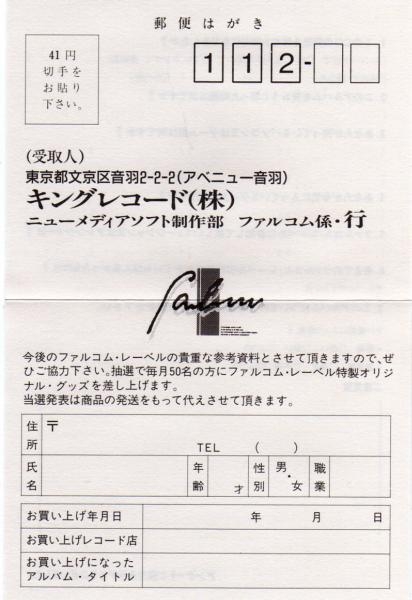 郵便はがき
41円
切手を
お貼り
下さい。
112-
(受取人)
東京都文京区音羽2-2-2(アベニュー音羽)
キングレコード(株)
ニューメディアソフト制作部 ファルコム係・行
falcom
今後のファルコム・レーベルの貴重な参考資料とさせて頂きますので、ぜ
ひご協力下さい。抽選で毎月50名の方にファルコム・レーベル特製オリジ
ナル・グッズを差し上げます。
当選発表は商品の発送をもって代えさせて頂きます。
住所 〒
TEL ( )
氏名 年齢 才 性別 男・女 職業
お買い上げ年月日 年 月 日
お買い上げレコード店
お買い上げになった
アルバム・タイトル